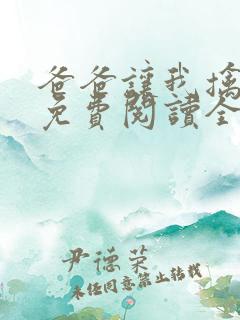 爸爸讓我擒
免費閱讀全
尹德荣
未经同意禁止转载